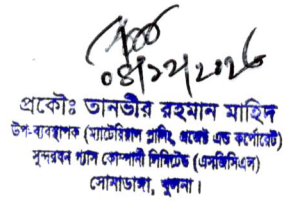 ০৪/১২/২০২৫
প্রকৌঃ তানভীর রহমান মাহিদ
উপ-ব্যবস্থাপক (ম্যাটেরিয়াল প্লানিং, প্রজেক্ট এন্ড কর্পোরেট)
সুন্দরবন গ্যাস কোম্পানী লিমিটেড (এসজিসিএল)
সোনাডাঙ্গা, খুলনা।